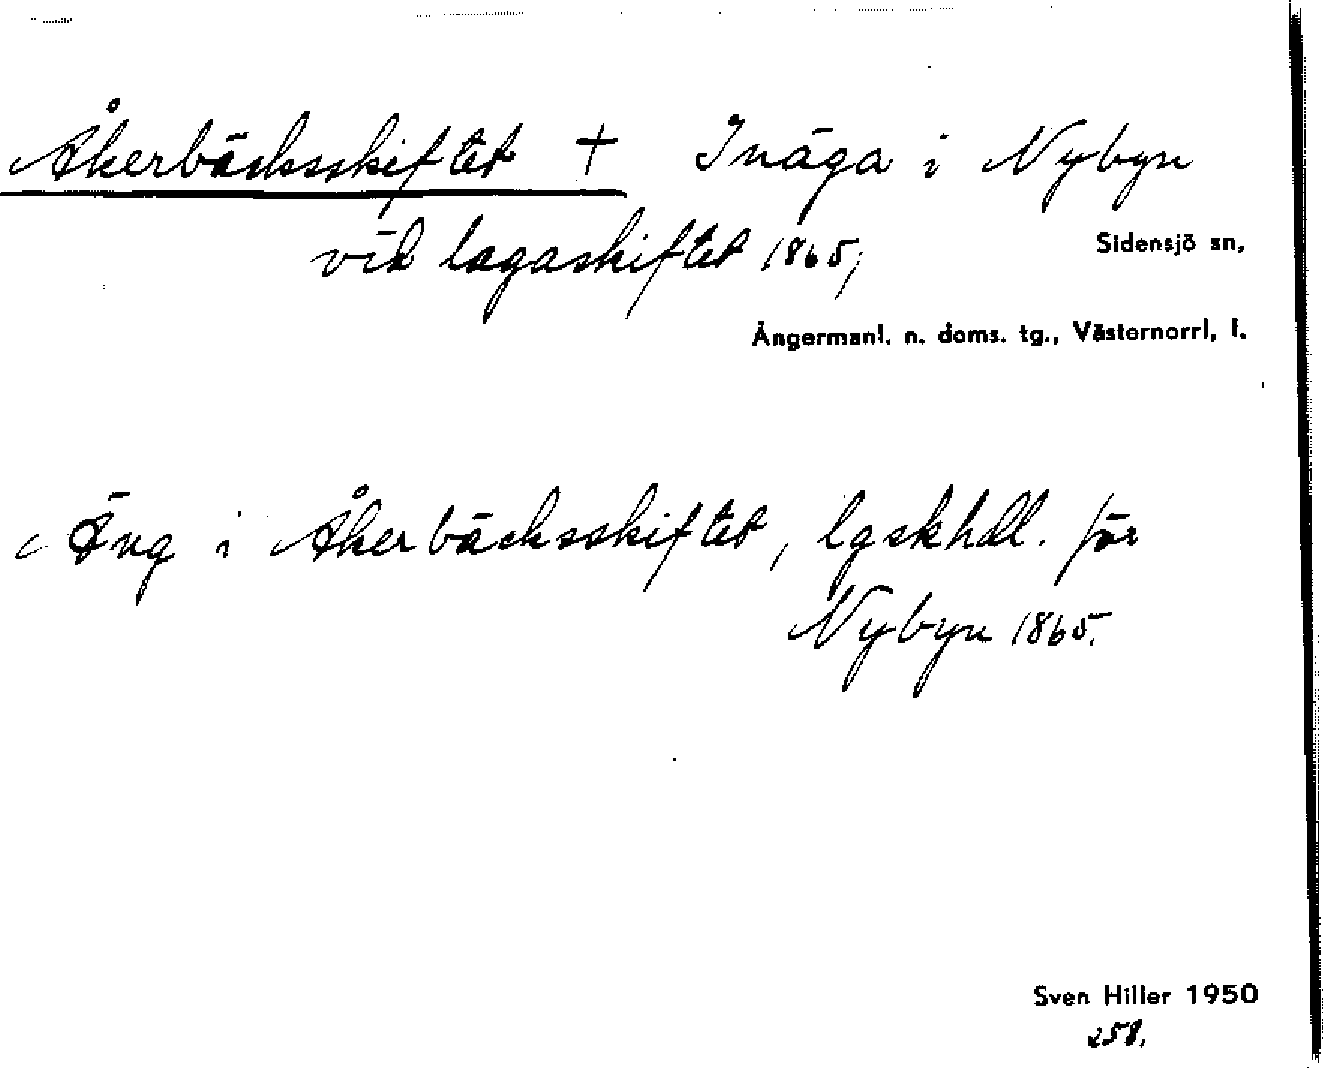 Åkerbäcksskiftet + Inäga i Nybyn
vid lagaskiftet 1865;
Sidensjö sn,
Ångermanl. n. doms. tg., Västernorrl, l.
Äng i Åkerbäcksskiftet, lgskhdl. för
Nybyn 1865.
Sven Hiller 1950
258.